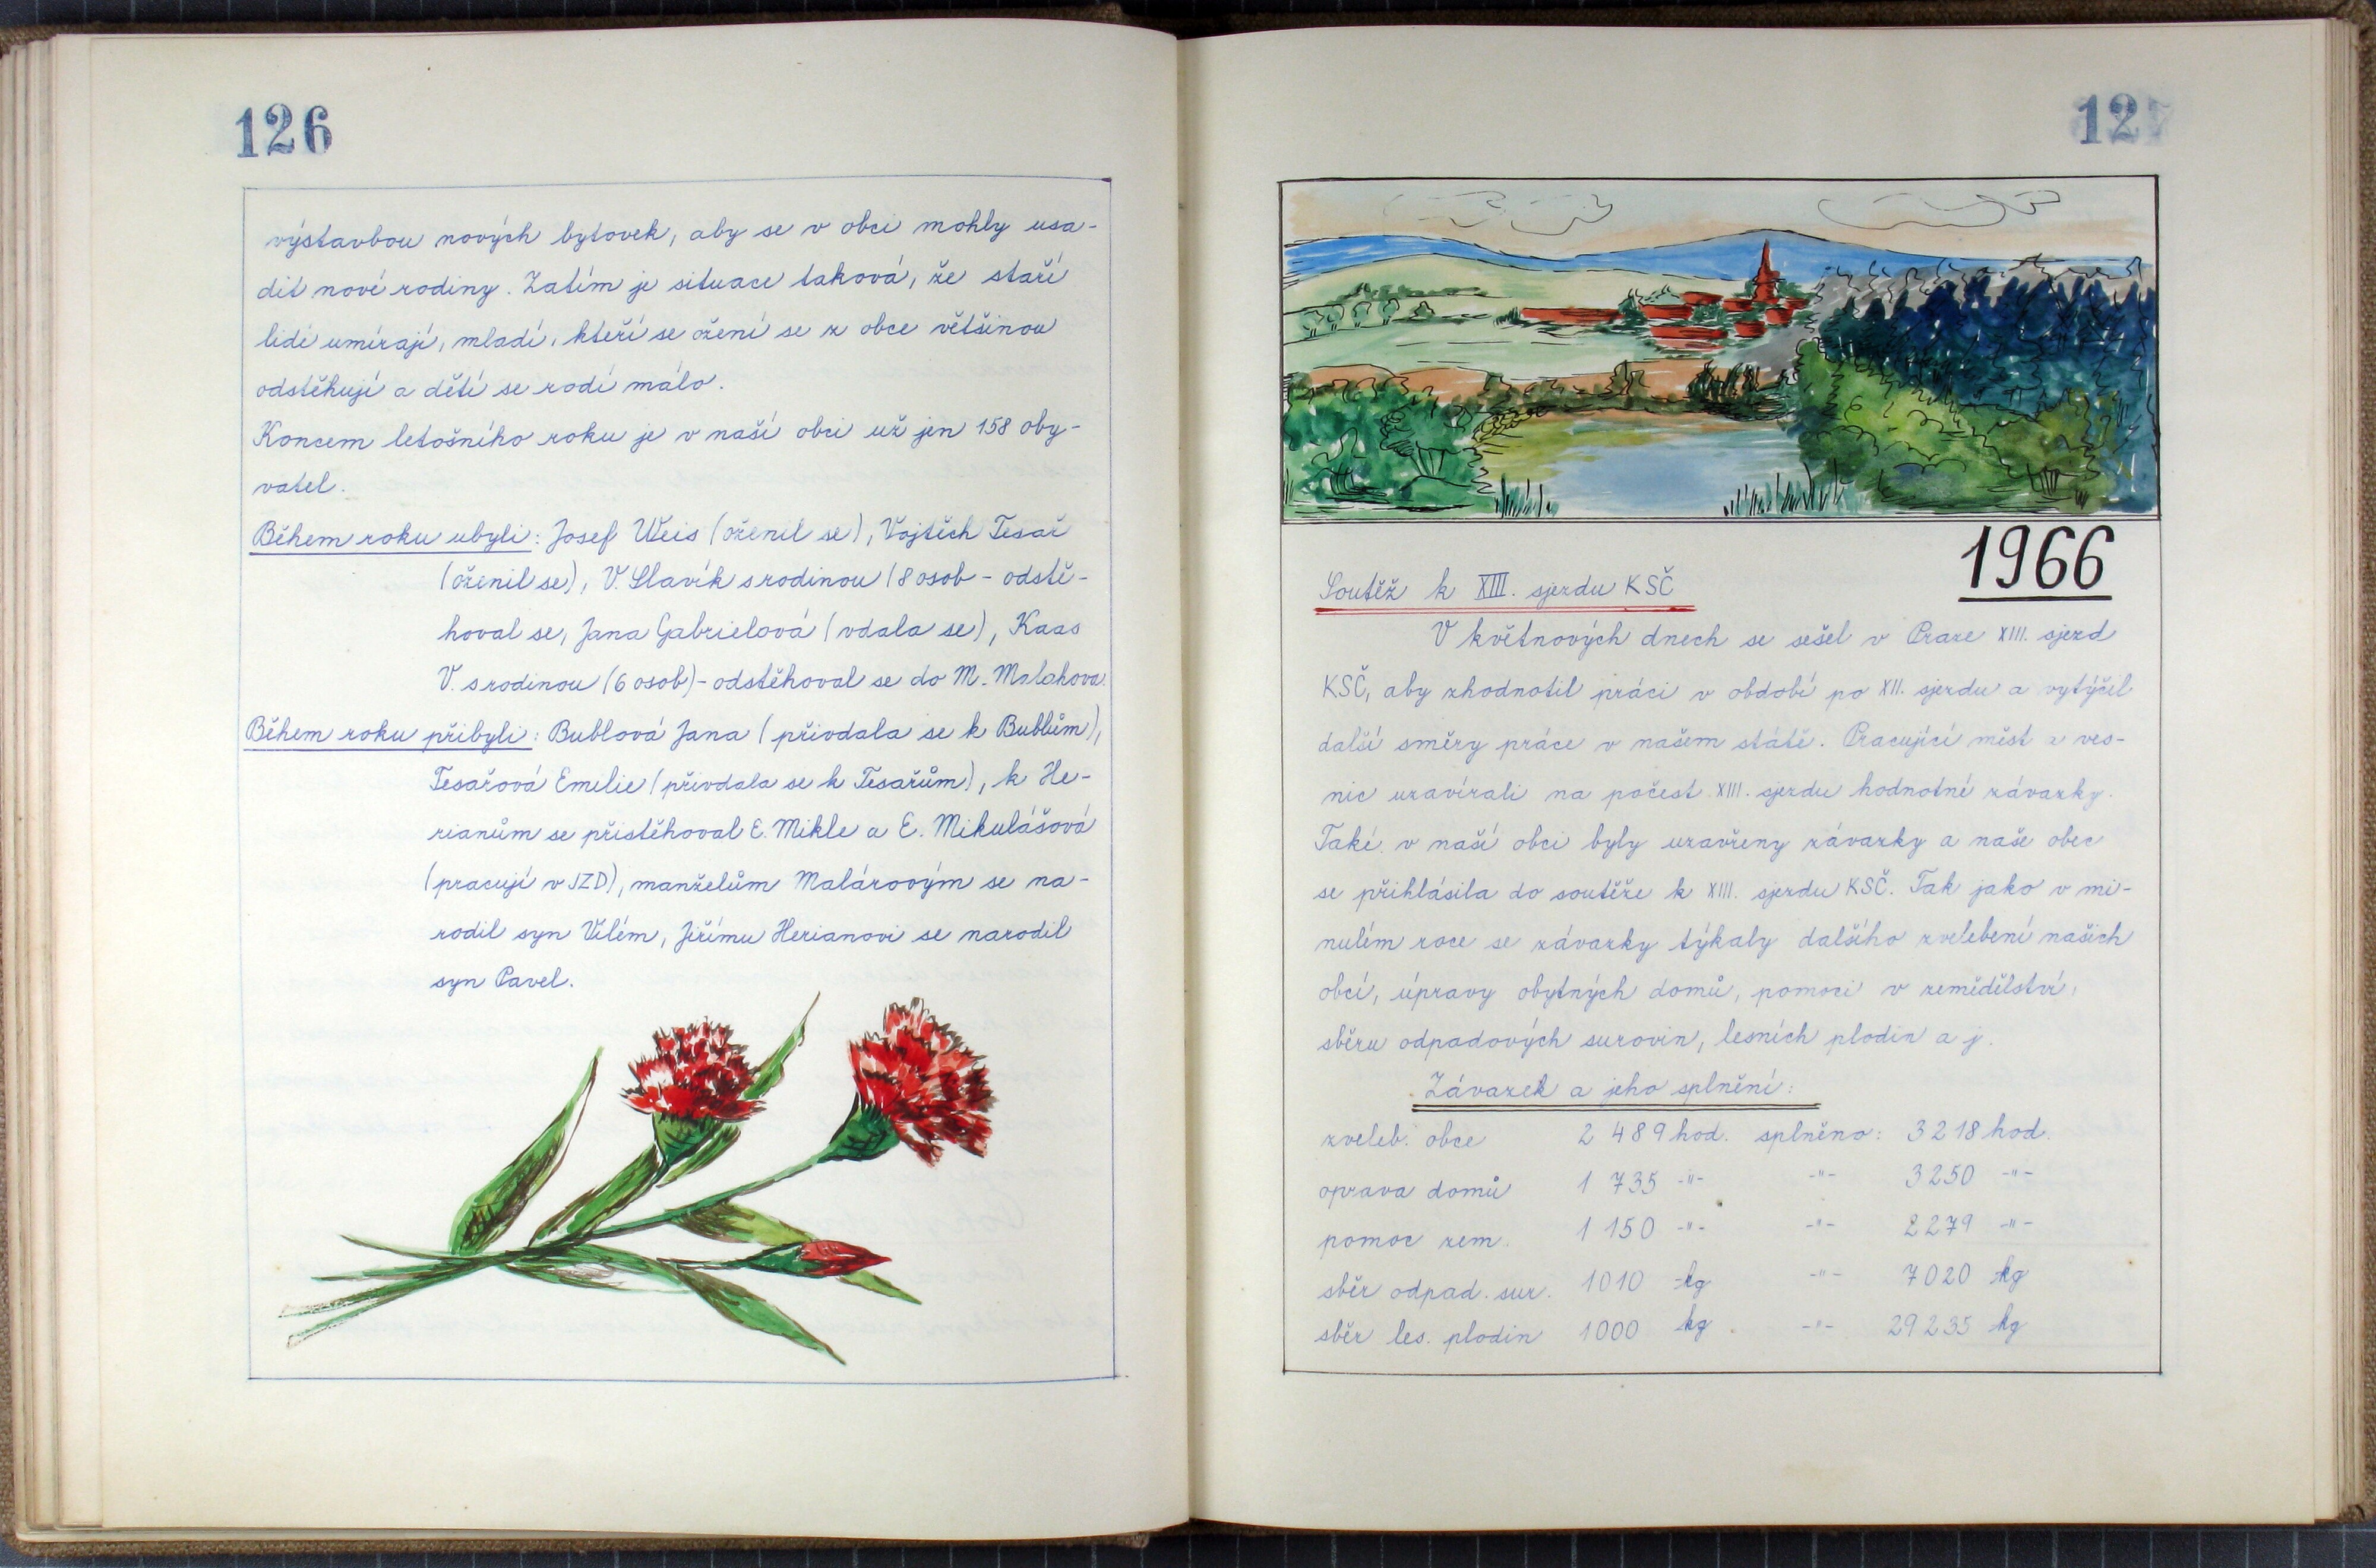 126
výstavbou nových bytovek, aby se v obci mohly usa-
dit nové rodiny. Zatím je situace taková, že staří
lidé umírají, mladí, kteří se ožení se z obce většinou
odstěhují a dětí se rodí málo.
Koncem letošního roku je v naší obci už jen 158 oby-
vatel.
Během roku ubyli: Josef Weis (oženil se), Vojtěch Tesař
(oženil se), V. Slavík s rodinou (8 osob - odstě-
hoval se, Jana Gabrielová (vdala se), Kaas
V. s rodinou (6 osob) - odstěhoval se do M. Malahova.
Během roku přibyli: Bublová Jana (přivdala se k Bublům),
Tesařová Emilie (přivdala se k Tesařům), k He-
rianům se přistěhoval E. Mikle a E. Mikulášová
(pracují v JZD), manželům Malárovým se na-
rodil syn Vilém, Jiřímu Herianovi se narodil
syn Pavel.
127
1966
Soutěž k XIII. sjezdu KSČ
V květnových dnech se sešel v Praze XIII. sjezd
KSČ, aby zhodnotil práci v období po XII. sjezdu a vytýčil
další směry práce v našem státě. Pracující měst a ves-
nic uzavírali na počest XIII. sjezdu hodnotné závazky.
Také v naší obci byly uzavřeny závazky a naše obec
se přihlásila do soutěže k XIII. sjezdu KSČ. Tak jako v mi-
nulém roce se závazky týkaly dalšího zvelebení našich
obcí, úpravy obytných domů, pomoci v zemědělství,
sběru odpadových surovin, lesních plodin a j.
Závazek a jeho splnění:
zveleb. obce 2 489 hod. splněno: 3218 hod.
oprava domů 1 735 -"- -"- 3250 -"-
pomoc zem. 1 150 -"- -"- 2279 -"-
sběr odpad. sur. 1010 kg -"- 7020 kg
sběr les. plodin 1000 kg -"- 29235 kg